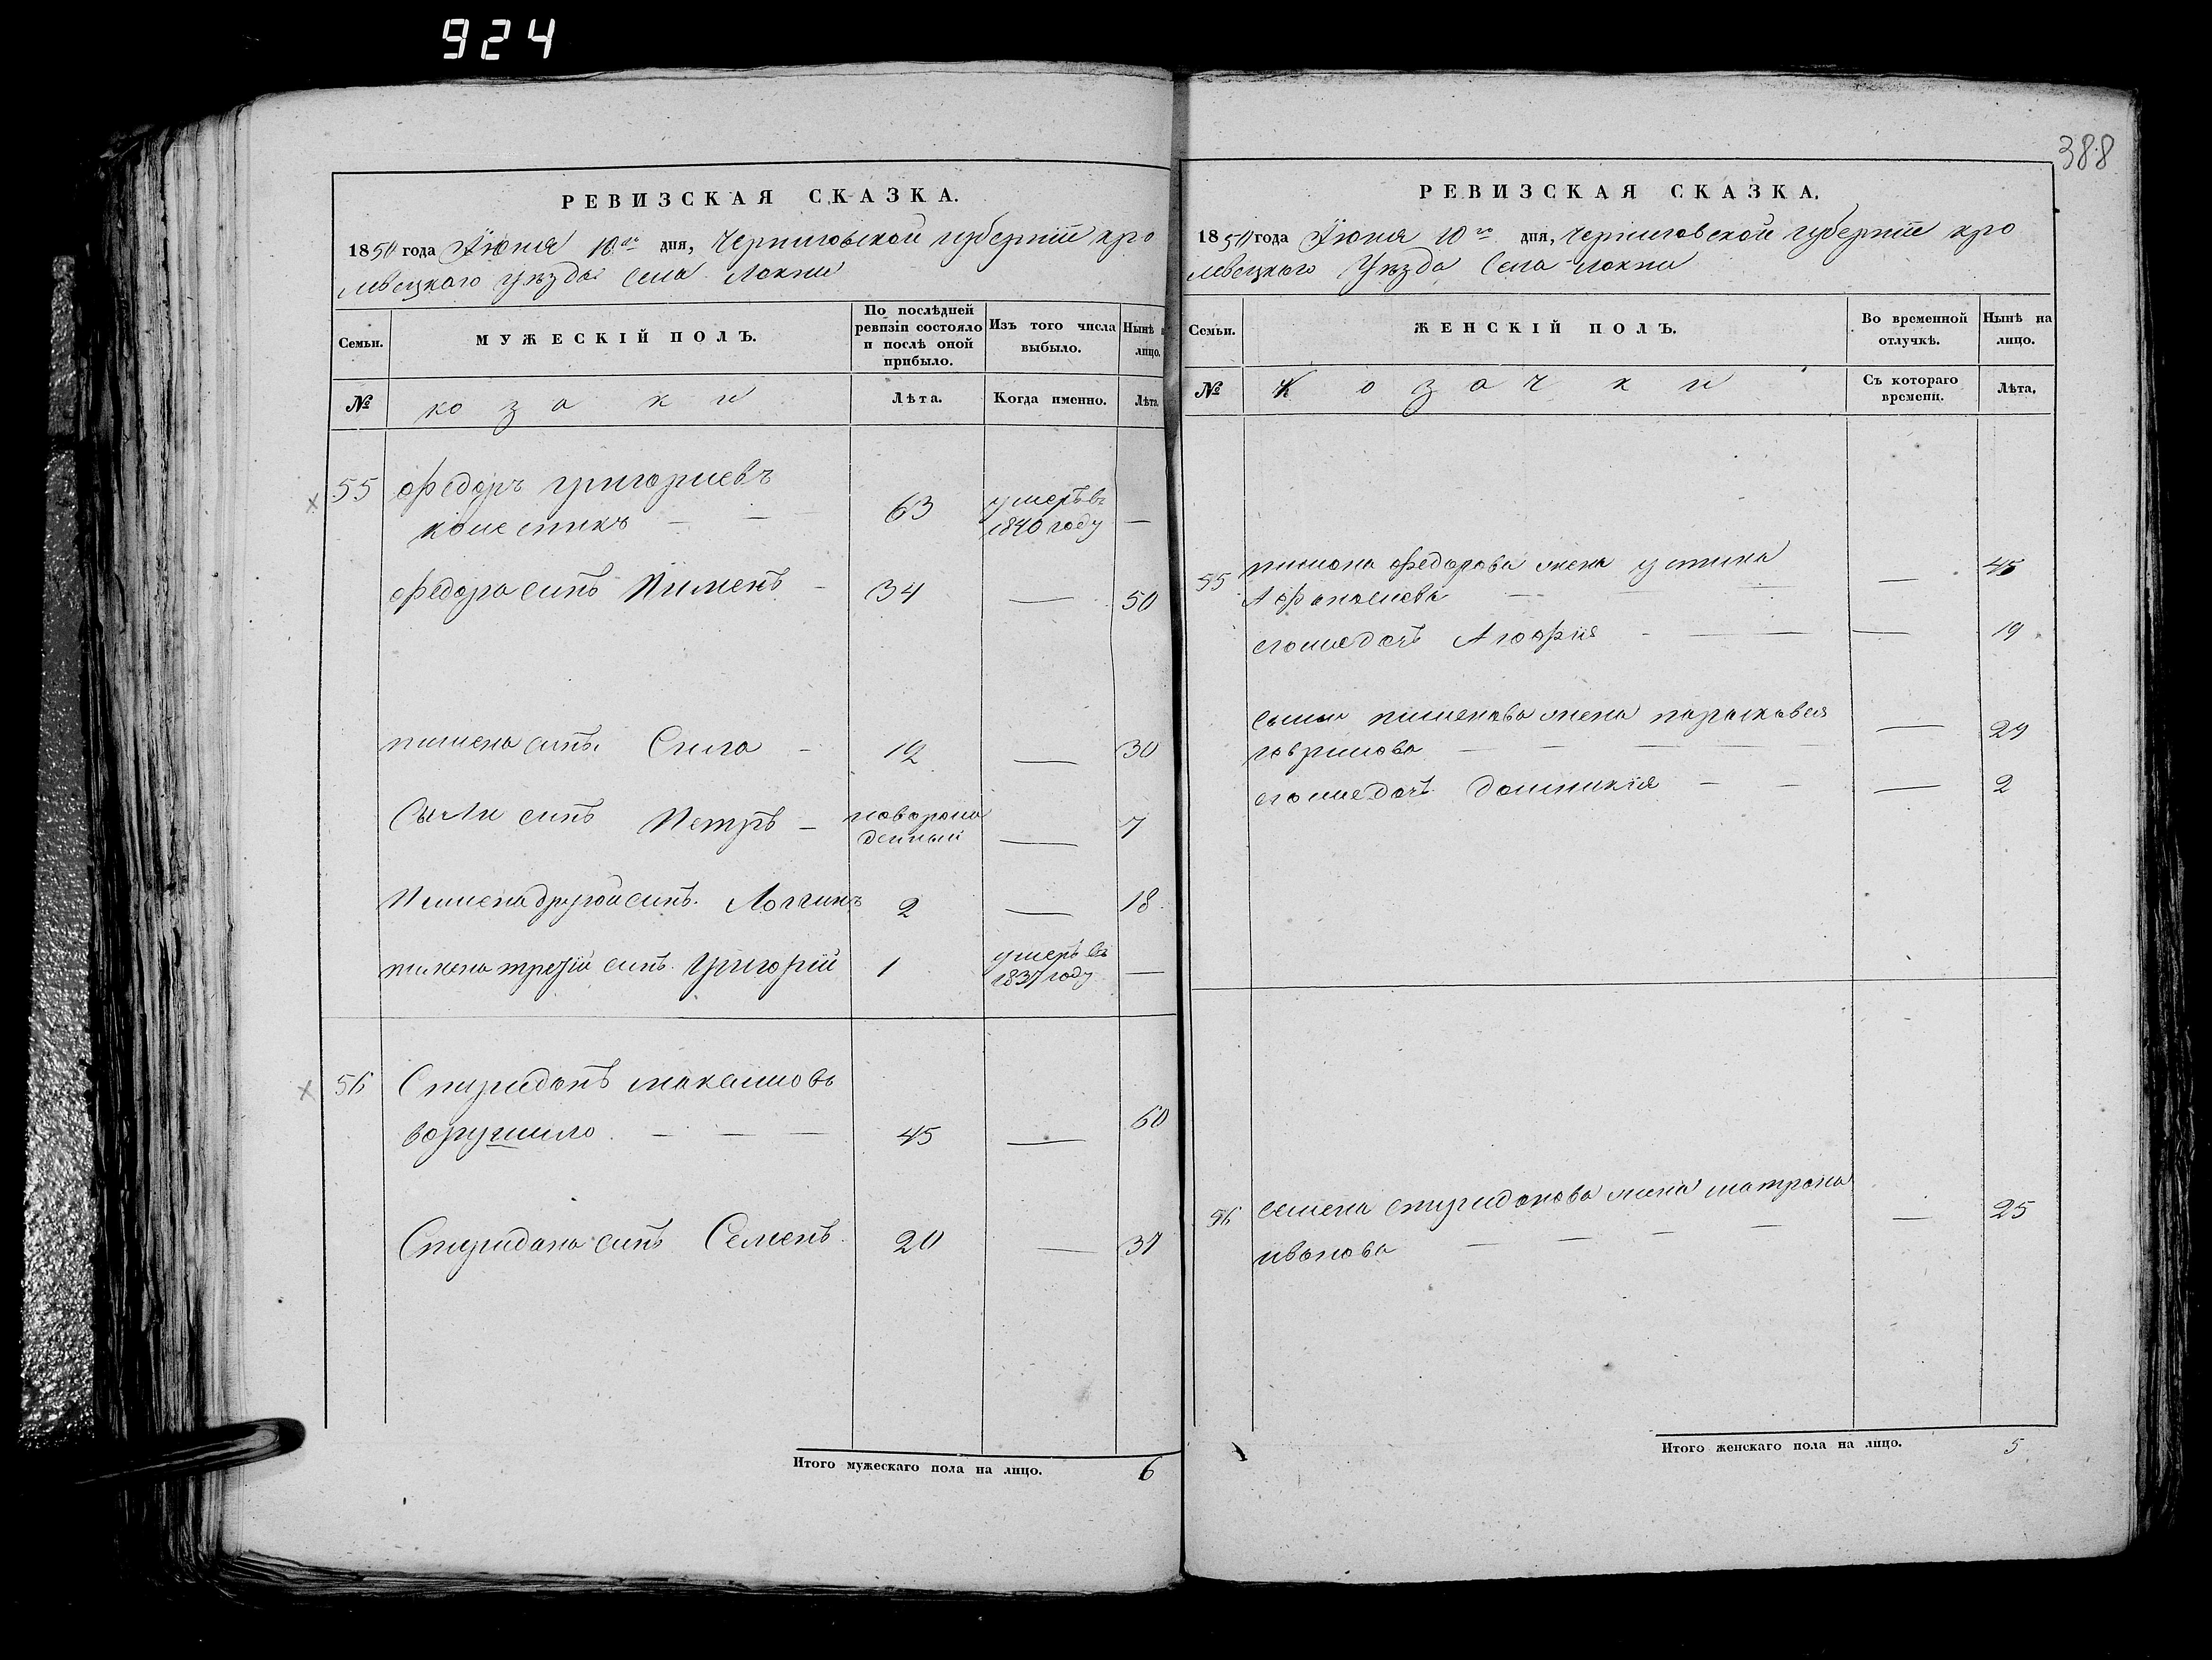 924
388
РЕВИЗСКАЯ СКАЗКА.
1850 года Июня 10го дня, Черниговской губернии кро
левецкаго уѣзда села Локни
Семьи.
МУЖЕСКІЙ ПОЛЪ.
По послѣдней ревизіи состояло и послѣ оной прибыло.
Изъ того числа выбыло.
Нынѣ лицо.
№
козаки
Лѣта.
Когда именно.
Лѣта.
55 Федоръ григориевъ
63 умеръ въ 1840 году —
Федора синъ Пименъ — 34 — 50
пимена синъ Сила — 12 — 30
Сылы синъ Петръ — новорож
денный — 7
Пимена другой синъ Логгинъ 2 — 18
пимена третій синъ Григорій 1 умеръ въ 1837 году —
56 Спиридонъ максимовъ
ворушило — — — 45 — 60
Спиридона синъ Семенъ 20 — 37
Итого мужескаго пола на лицо. 6
РЕВИЗСКАЯ СКАЗКА.
1850 года Июня 10го дня, Черниговской губернии кро
левецкаго уѣзда Села Локни
Семьи.
ЖЕНСКІЙ ПОЛЪ.
Во временной отлучкѣ.
Нынѣ на лицо.
№
Козачки
Съ котораго времени.
Лѣта.
55 пимона федорова жена устина
Афанасиева — — — 45
егоже дочь Агафія — — — 19
сылы пименова жена параскавея
гаврилова — — — — 29
егоже дочь домникія — — — 2
56 семена спиридонова жена матрона
иванова — — — — — 25
Итого женскаго пола на лицо. 5